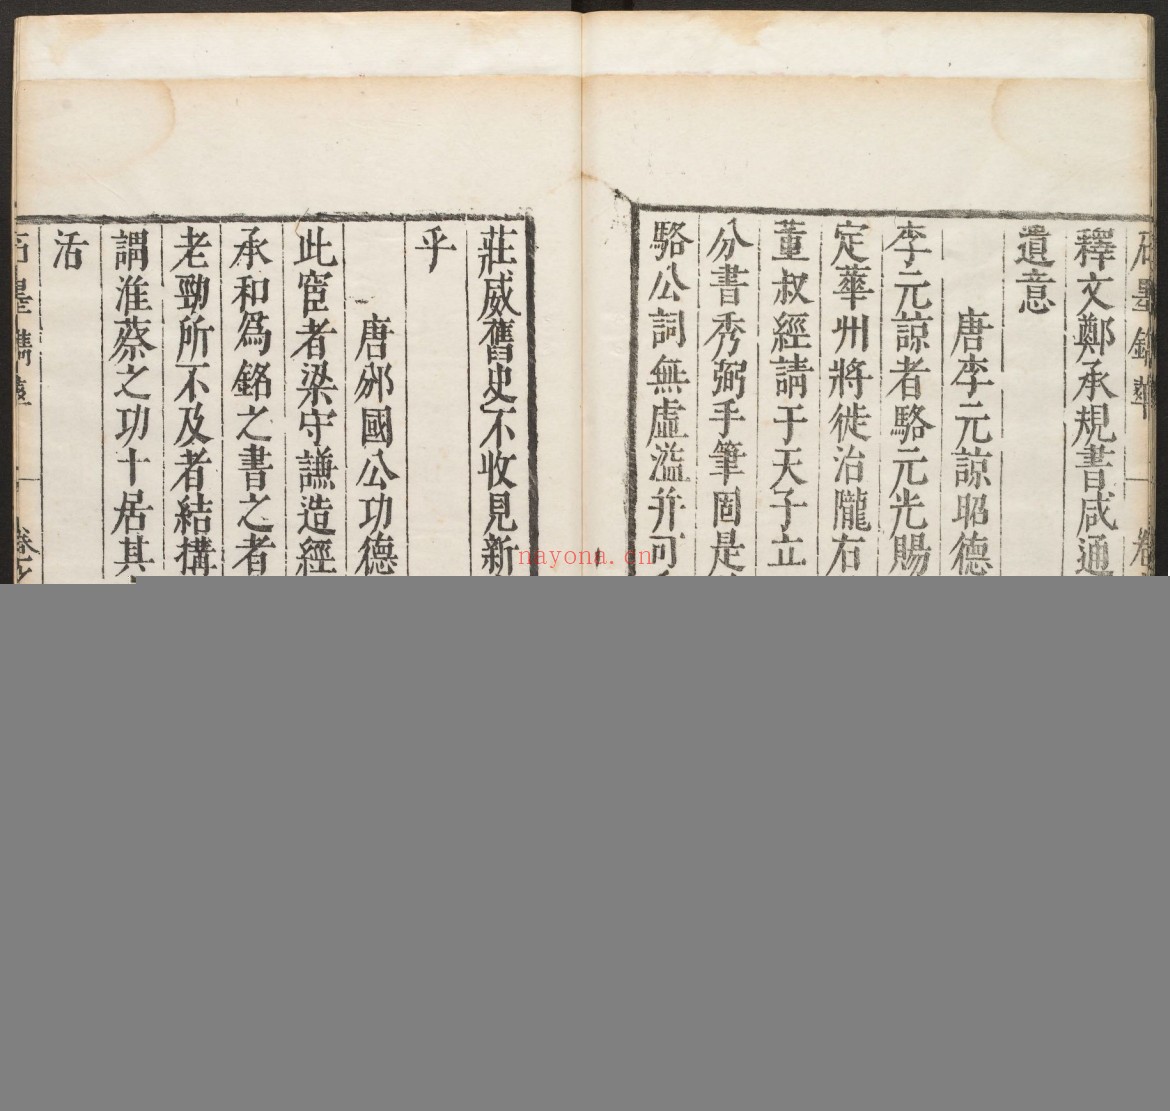 石墨鐫華
釋文鄭承規書咸通
遺意
唐李元諒昭德
李元諒者駱元光賜
定華州將徙治隴右
董叔經請于天子立
分書秀弼手筆固是
駱公詞無虛濫并可
莊威舊史不收見新
乎
唐邠國公功德
此宦者梁守謙造經
承和為銘之書之者
老勁所不及者結搆
謂淮蔡之功十居其
活
石墨鐫華
nayona.cn